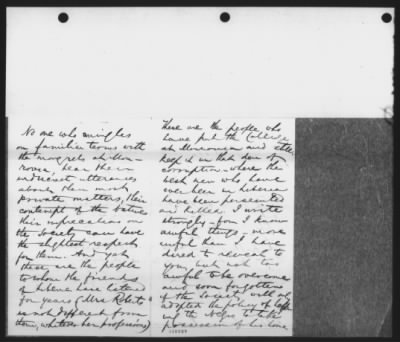 No one who mingles
on familiar terms with
the mongrels at Mon-
rovia, hear their
indecent utterances
about their most
private matters, their
contempt of the natives
their imprecations on
the Society can have
the slightest respect
for them. And yet
these are the people
to whom the friends
of Liberia have listened
for years (Mrs Roberts
is not different from
them, whatever her professions)
These are the people who
have put the College
at Monrovia and still
keep it in that den of
corruption - where the
best men who have
ever been in Liberia
have been persecuted
and killed. I write
strongly - for I know
awful things - more
awful than I have
dared to reveal to
you, but not too
awful to be overcome
and soon forgotten
if the Society will only
adopt the policy of
the Negro to take
possession of his home